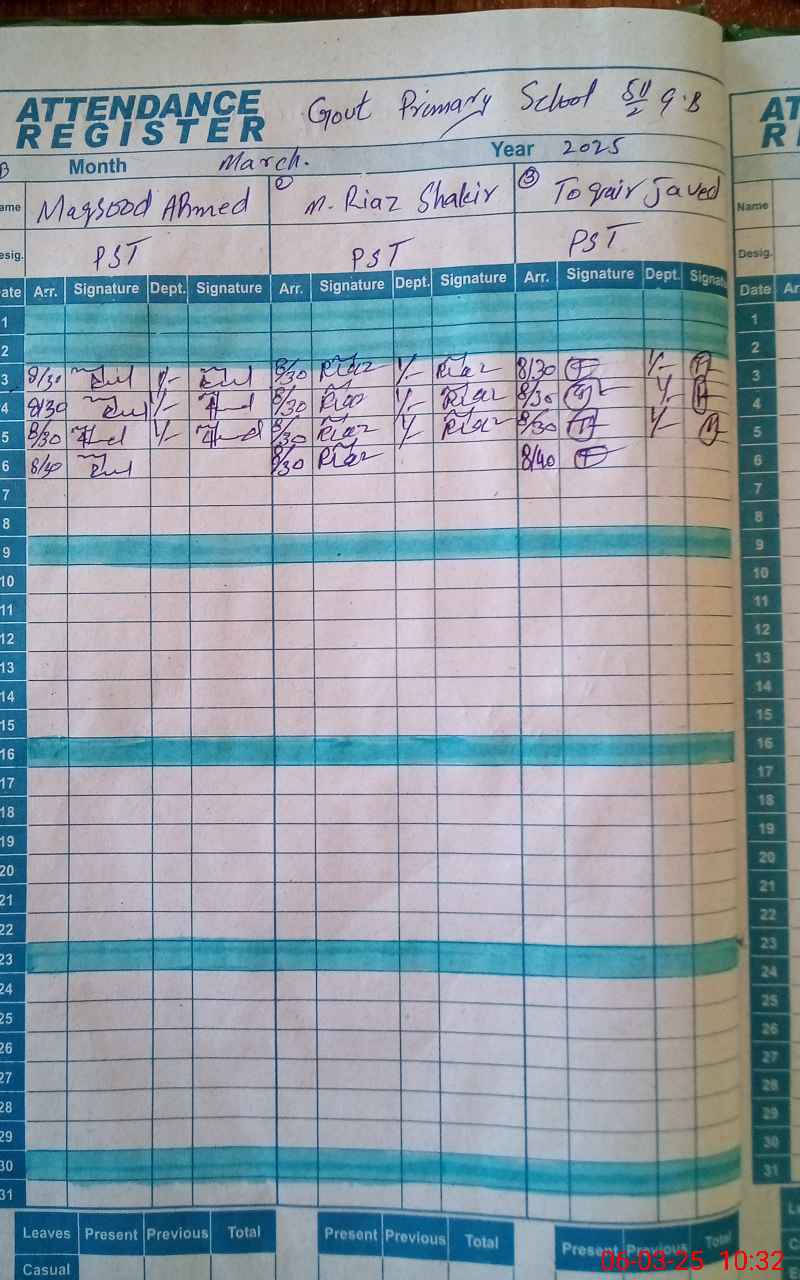 ATTENDANCE REGISTER
Govt Primary School 511/2 G.B
Month March. Year 2025
Name Maqsood Ahmed ② M. Riaz Shakir ③ Toqair Javed Name
Desig. PST PST PST Desig.
Date Arr. Signature Dept. Signature Arr. Signature Dept. Signature Arr. Signature Dept. Date
1 1
2 2
3 8/30 1/- 8/30 Riaz 1/- Riaz 8/30 1/- 3
4 8/30 1/- 8/30 Riaz 1/- Riaz 8/30 1/- 4
5 8/30 1/- 8/30 Riaz 1/- Riaz 8/30 1/- 5
6 8/40 8/30 Riaz 8/40 6
7 7
8 8
9 9
10 10
11 11
12 12
13 13
14 14
15 15
16 16
17 17
18 18
19 19
20 20
21 21
22 22
23 23
24 24
25 25
26 26
27 27
28 28
29 29
30 30
31 31
Leaves Present Previous Total Present Previous Total Present Previous Total
Casual
06-03-25 10:32